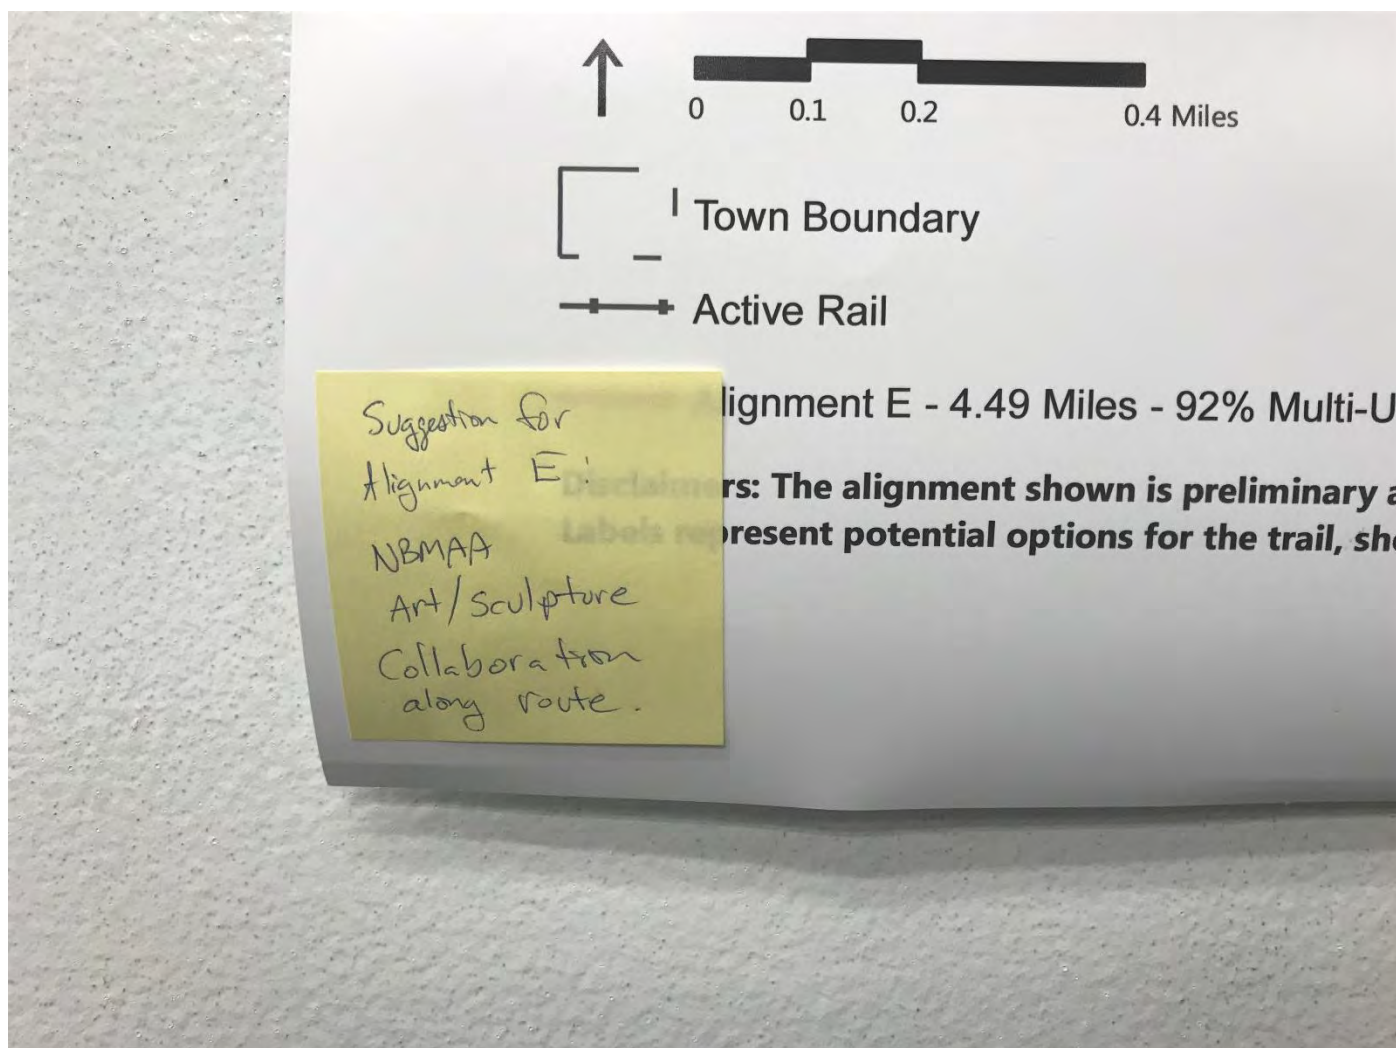 0 0.1 0.2 0.4 Miles
Town Boundary
Active Rail
lignment E - 4.49 Miles - 92% Multi-U
Disclaimers: The alignment shown is preliminary a
Labels represent potential options for the trail, sho
Suggestion for
Alignment E:
NBMAA
Art/Sculpture
Collaboration
along route.